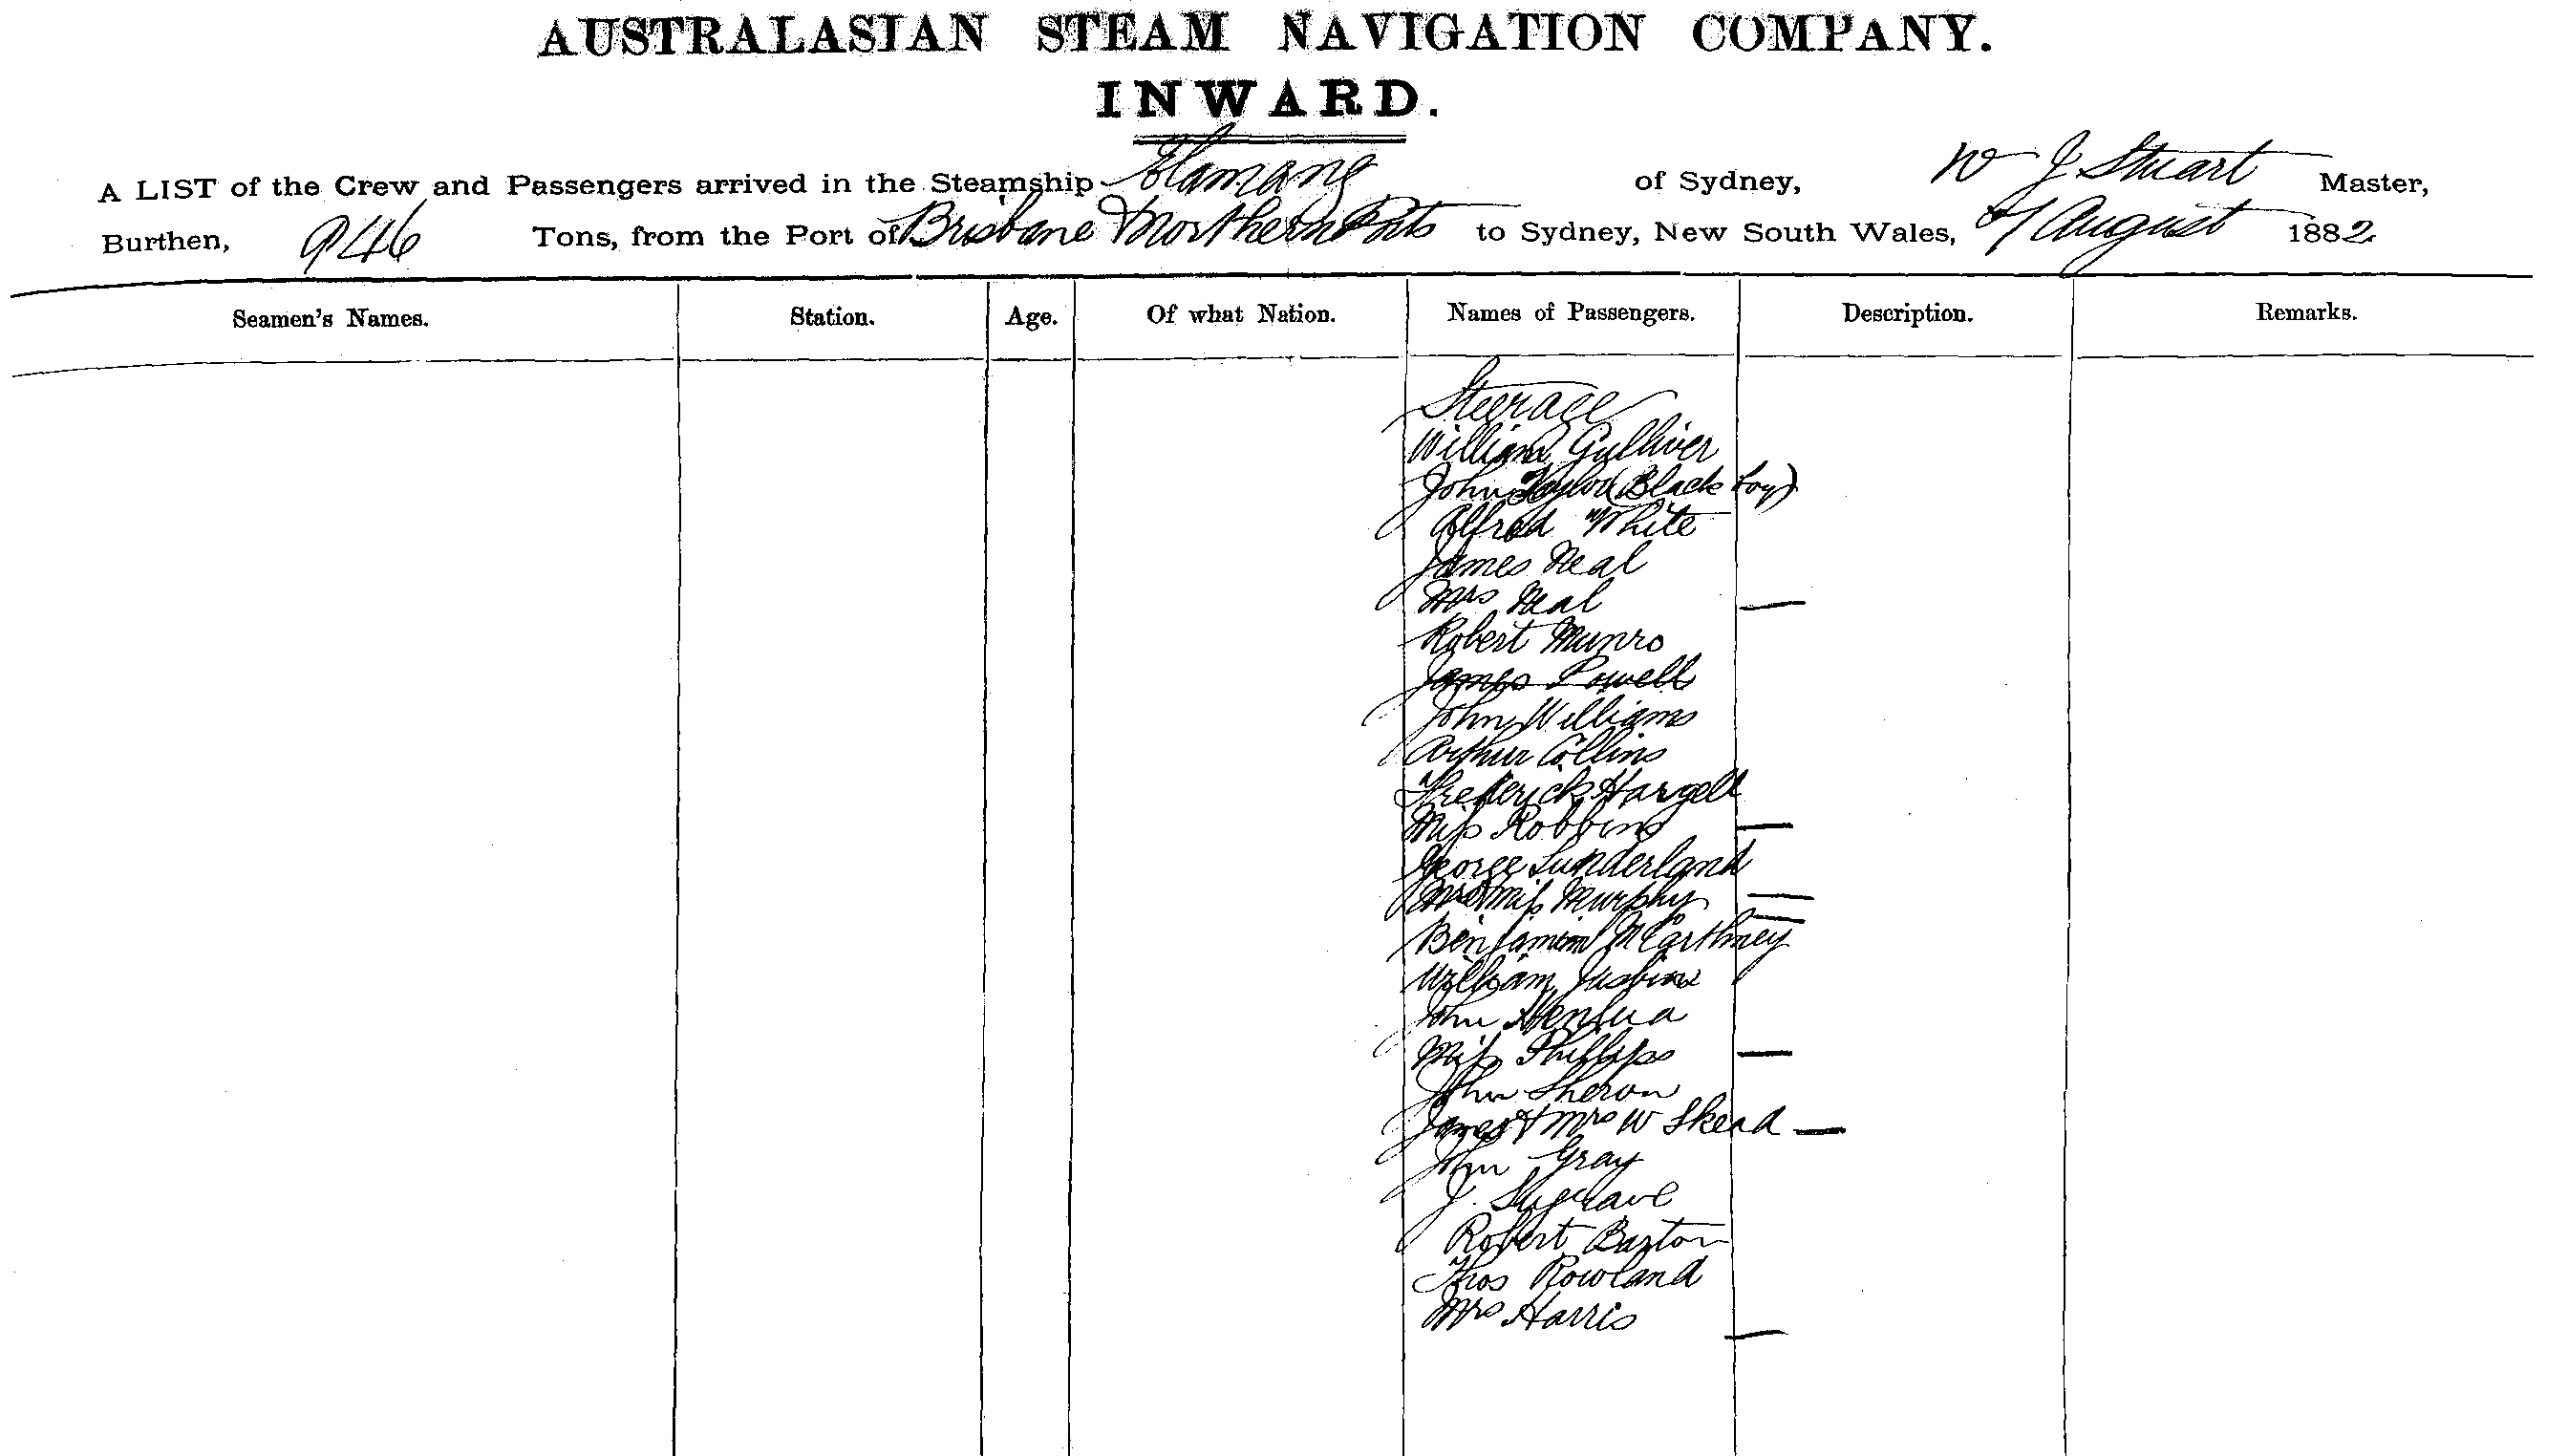 AUSTRALASIAN STEAM NAVIGATION COMPANY.
INWARD.
A LIST of the Crew and Passengers arrived in the Steamship Elamang of Sydney, W J Stuart Master,
Burthen, 946 Tons, from the Port of Brisbane & Northern Ports to Sydney, New South Wales, August 1882
Seamen's Names. Station. Age. Of what Nation. Names of Passengers. Description. Remarks.
Steerage
William Gulliver
John Taylor (Black boy)
Alfred White
James Neal
Mrs Neal
Robert Munro
James Powell
John Williams
Arthur Collins
Frederick Hargell
Miss Robbins
George Sunderland
Mrs & Miss Murphy
Benjamin McCarthney
William
John
Miss Phillips
John Sheron
James & Mrs W Skead
John Gray
J.
Robert Barton
Thos Rowland
Mrs Harris